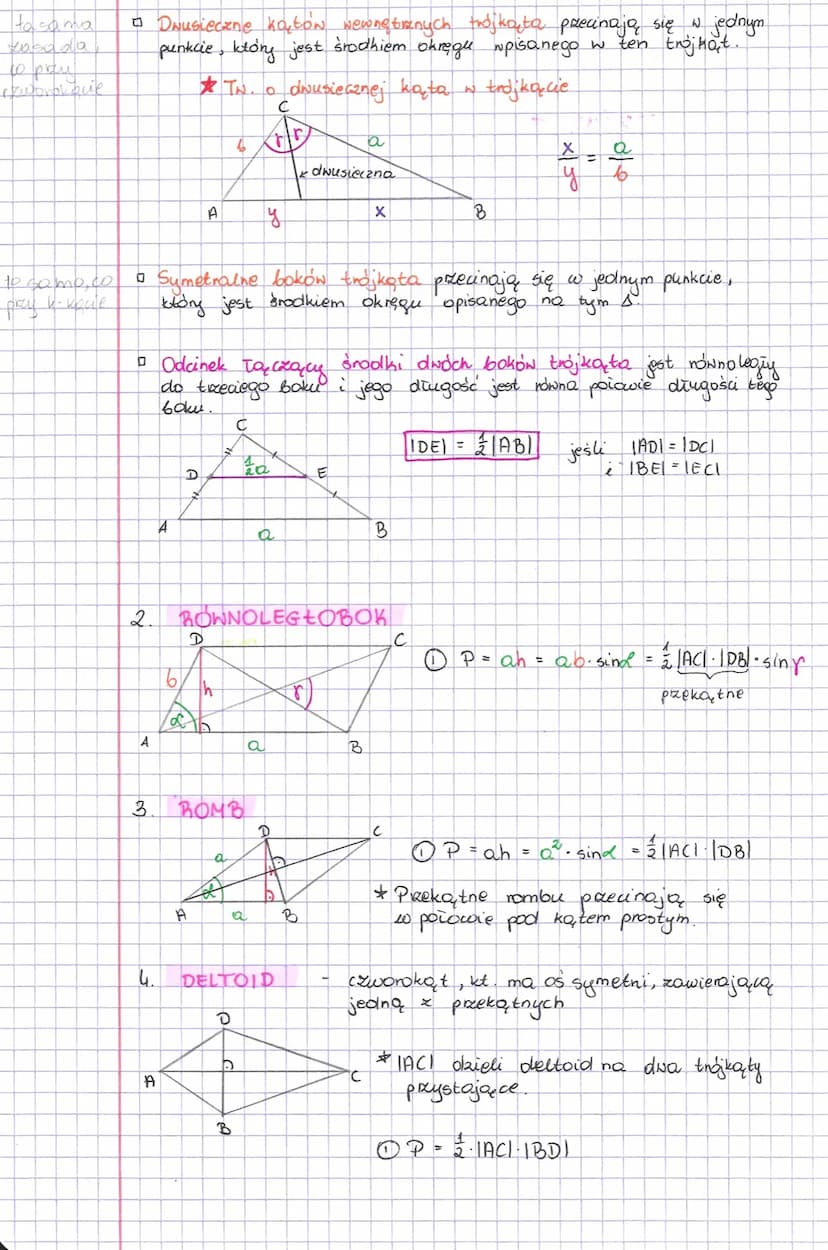 ta sama
zasada,
co przy
czworokącie
▫ Dwusieczne kątów wewnętrznych trójkąta przecinają się w jednym
punkcie, który jest środkiem okręgu wpisanego w ten trójkąt.
★ Tw. o dwusiecznej kąta w trójkącie
C
b γ γ a
dwusieczna
A y x B
x/y = a/b
to samo, co
przy 4-kącie
▫ Symetralne boków trójkąta przecinają się w jednym punkcie,
który jest środkiem okręgu opisanego na tym Δ.
▫ Odcinek łączący środki dwóch boków trójkąta jest równoległy
do trzeciego boku i jego długość jest równa połowie długości tego
boku.
C
D ½a E
A a B
|DE| = ½|AB| jeśli |AD| = |DC|
i |BE| = |EC|
2. RÓWNOLEGŁOBOK
D C
b h γ
α
A a B
① P = ah = ab · sinα = ½ |AC| · |DB| · sinγ
przekątne
3. ROMB
D C
a h
α
A a B
① P = ah = a² · sinα = ½|AC| · |DB|
* Przekątne rombu przecinają się
w połowie pod kątem prostym.
4. DELTOID - czworokąt, kt. ma oś symetrii, zawierającą
jedną z przekątnych
D
A C
B
* |AC| dzieli deltoid na dwa trójkąty
przystające.
① P = ½ · |AC| · |BD|